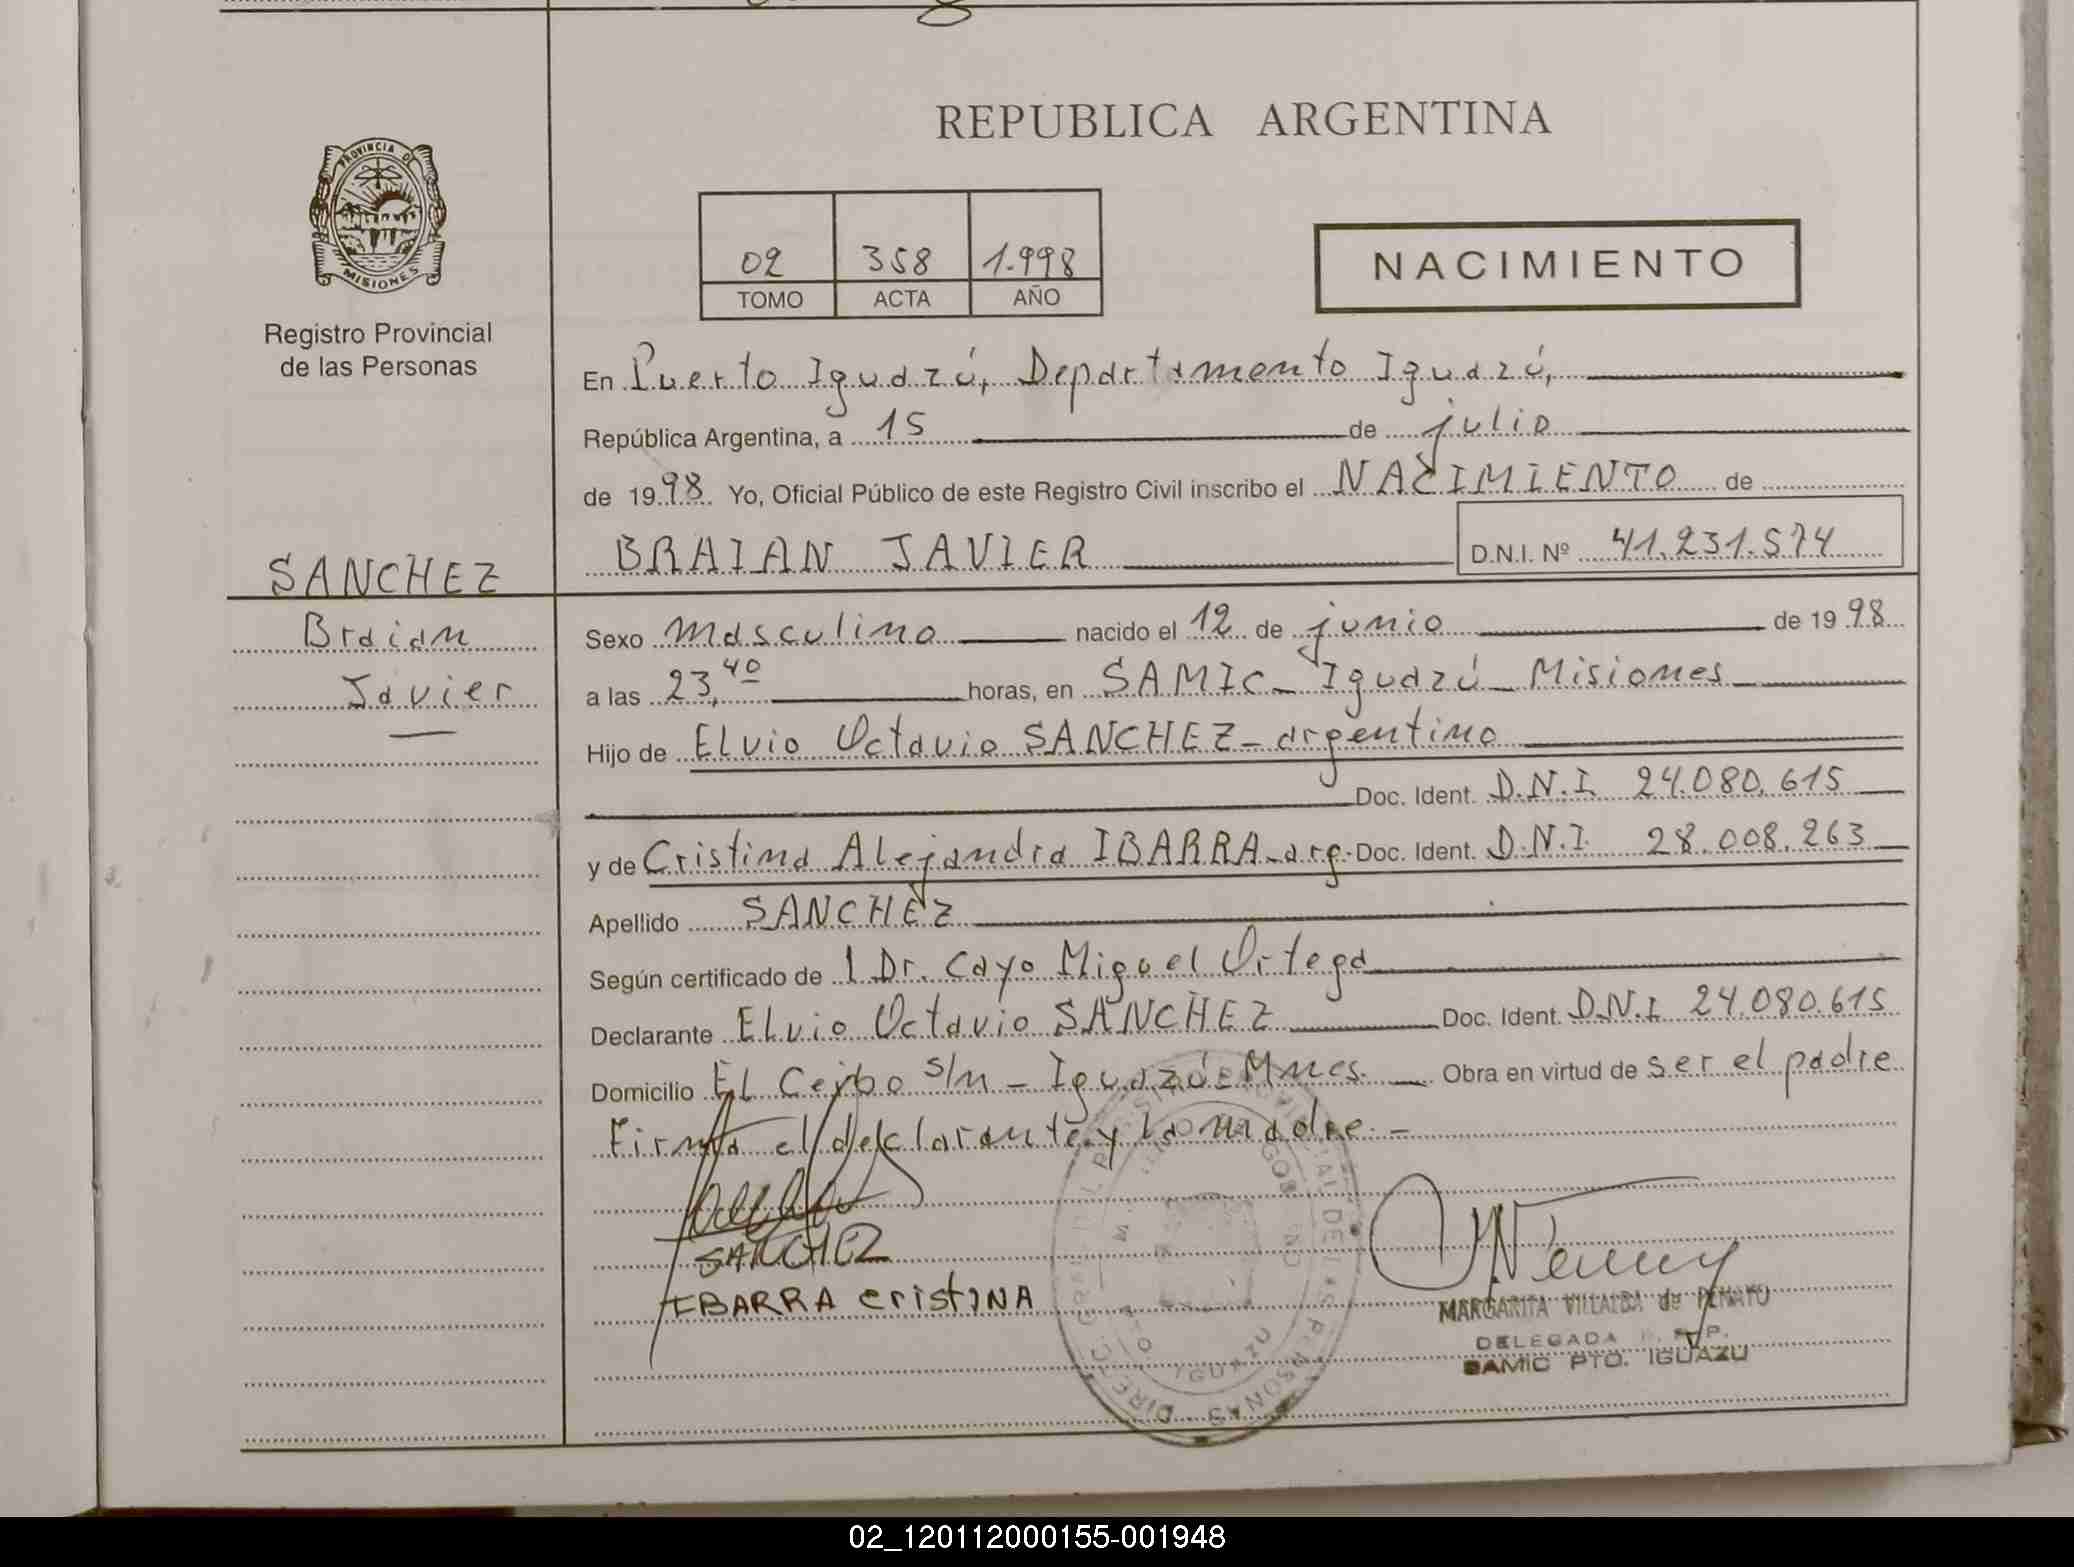 REPUBLICA ARGENTINA
PROVINCIA DE
MISIONES
Registro Provincial
de las Personas
02 358 1.998
TOMO ACTA AÑO
NACIMIENTO
En Puerto Iguazú, Departamento Iguazú,
República Argentina, a 15 de julio
de 1998 Yo, Oficial Público de este Registro Civil inscribo el NACIMIENTO de
BRAIAN JAVIER D.N.I. Nº 41.231.574
SANCHEZ
Braian
Javier
Sexo masculino nacido el 12 de junio de 1998
a las 23,40 horas, en SAMIC - Iguazú - Misiones
Hijo de Elvio Octavio SANCHEZ - argentino
Doc. Ident. D.N.I. 24.080.615
y de Cristina Alejandra IBARRA - arg. Doc. Ident. D.N.I. 28.008.263
Apellido SANCHEZ
Según certificado de l Dr. Cayo Miguel Ortega
Declarante Elvio Octavio SANCHEZ Doc. Ident. D.N.I 24.080.615
Domicilio El Ceibo s/n - Iguazú - Mnes. Obra en virtud de ser el padre
Firma el declarante y la madre. -
SANCHEZ
IBARRA CristINA
MARGARITA VILLALBA de PENAYO
DELEGADA R. P. P.
SAMIC PTO. IGUAZU
02_120112000155-001948